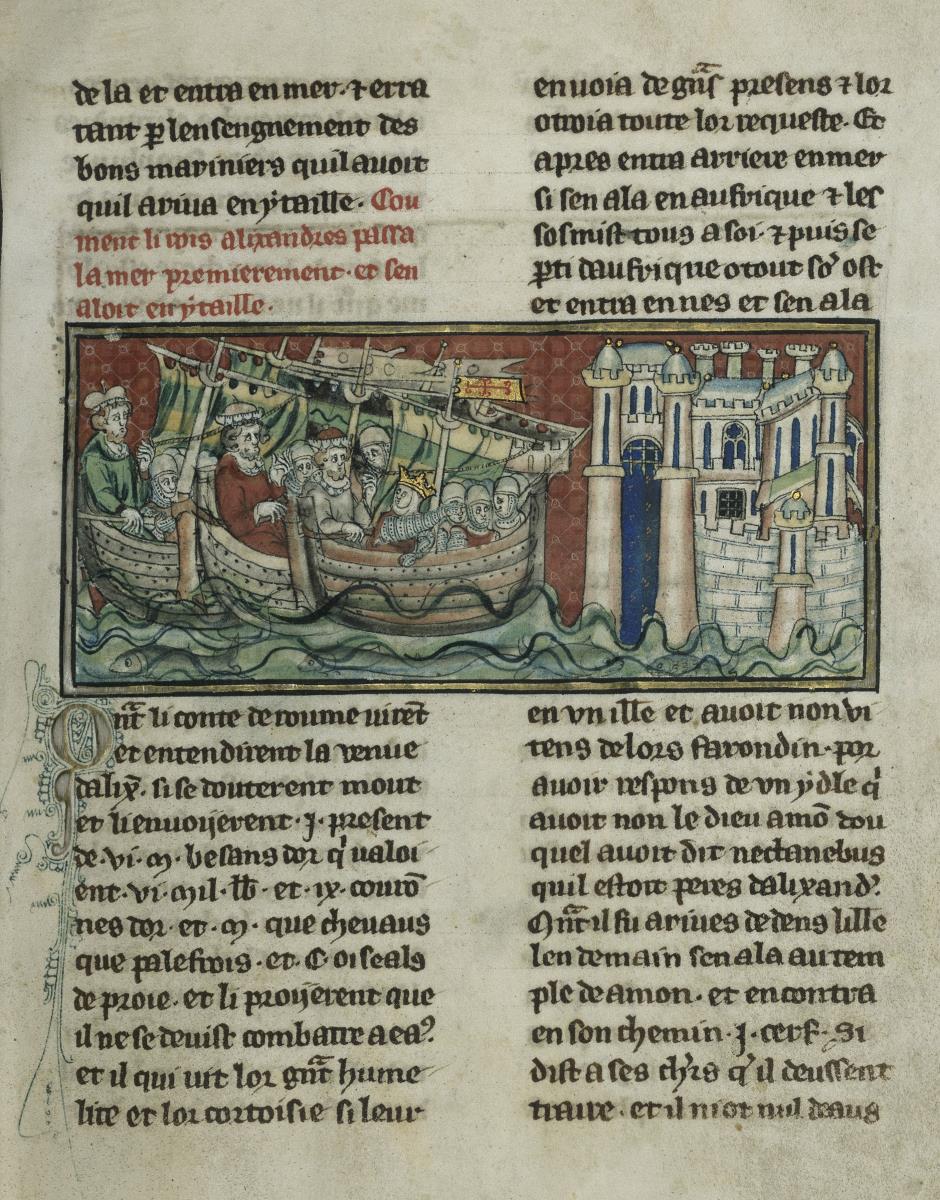 de la et entra en mer· ⁊ erra
tant p̱ lensengnement des
bons mariniers quil auoit
quil ariua en ẏtaille· Cou
ment li rois alixandres passa
la mer premierement· et sen
aloit en ẏtaille·
Qn̄t li conte de roume uirēt
et entendirent la venue
dalix̄· si se douterent mout
et li enuoijerent ·j· present
de ·vi· m̄· besans dor q̍ ualoi
ent ·vi· mil· lb̄· et ·ix· courō
nes dor· et ·m̄· que cheuaus
que palefrois· et ·C· oiseals
de proie· et li proijerent que
il ne se deuist combatre a eaꝰ
et il qui uit lor gn̄t hume
lite et lor cortoisie si leur
enuoia de gn̄s presens ⁊ lor
otroia toute lor requeste· Et
apres entra arriere en mer
si sen ala en aufrique ⁊ les
sosmist tous a soi· ⁊ puis se
p̱ti daufrique o tout sō ost
et entra en nes et sen ala
en vn ille et auoit non vi
tens de lors farondin· por
auoir respons de vn ẏdle q̍
auoit non le dieu amō dou
quel auoit dit nectanebus
quil estoit peres dalixand̾
Qn̄t il fu ariues dedens lille
len demain sen ala au tem
ple de amon· et encontra
en son chemin ·j· cerf· Si
dist a ses ch̾rs q̄ il deussent
traire· et il niot nul deaus